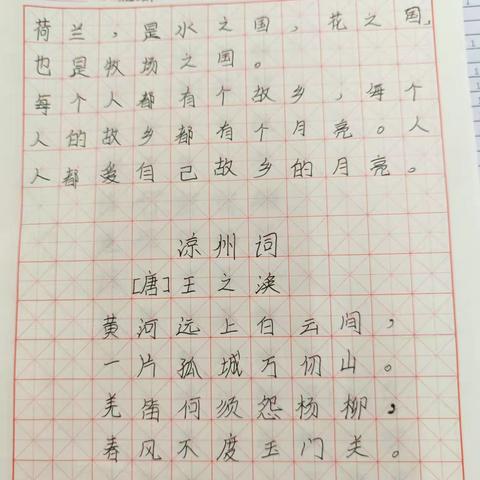 荷兰，是水之国，花之国，
也是牧场之国。
每个人都有个故乡，每个
人的故乡都有个月亮。人
人都爱自己故乡的月亮。
凉州词
[唐]王之涣
黄河远上白云间，
一片孤城万仞山。
羌笛何须怨杨柳，
春风不度玉门关。